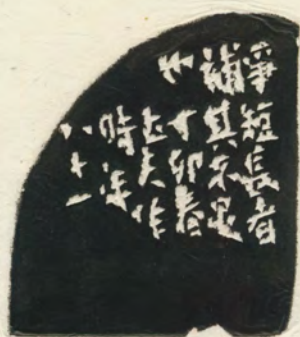 爭短長者
補其不足
也丁卯春
夫作
時年
八十一